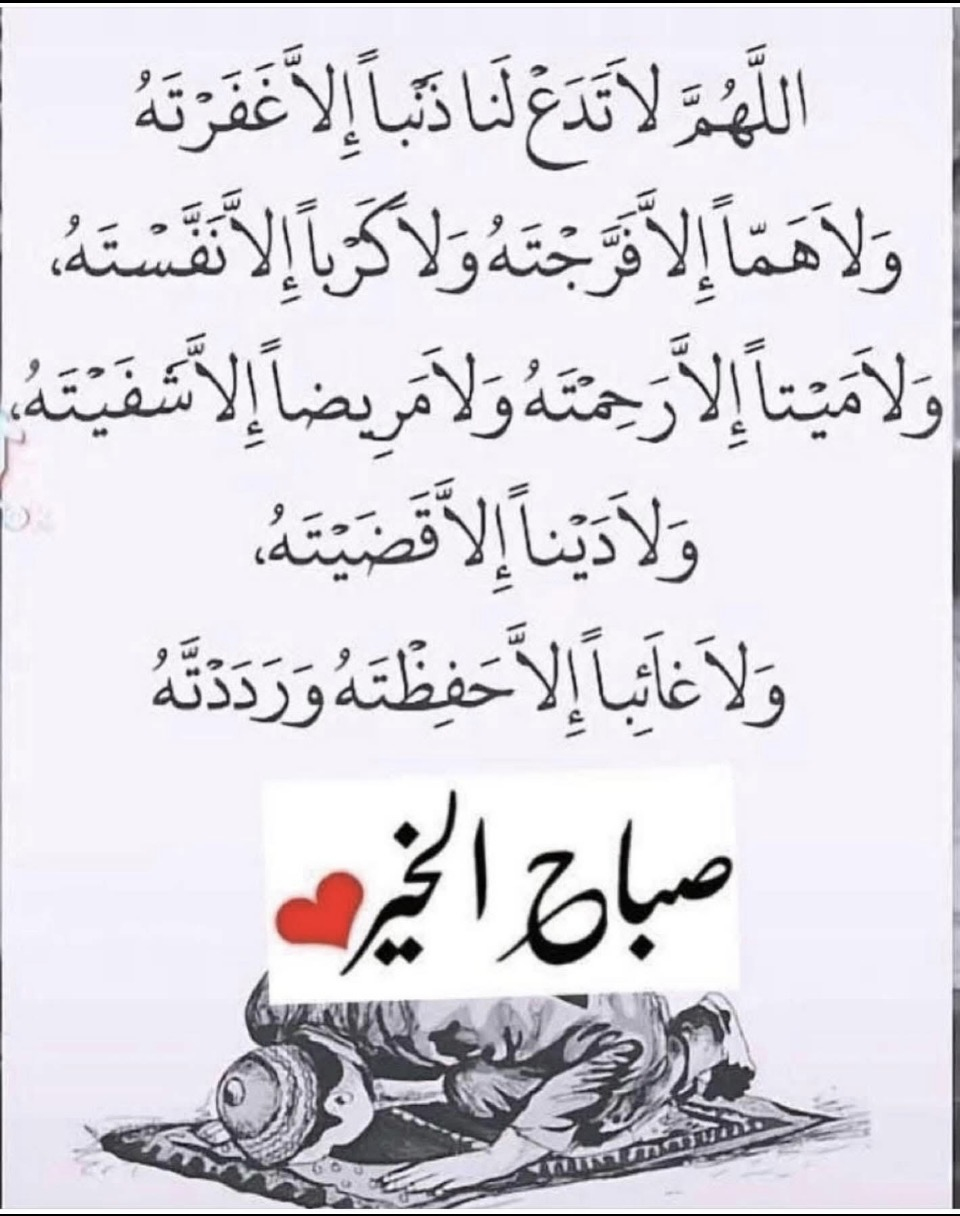 اللَّهُمَّ لاَ تَدَعْ لَنَا ذَنْباً إِلاَّ غَفَرْتَهُ
وَلاَ هَمّاً إِلاَّ فَرَّجْتَهُ وَلاَ كَرْباً إِلاَّ نَفَّسْتَهُ،
وَلاَ مَيْتاً إِلاَّ رَحِمْتَهُ وَلاَ مَرِيضاً إِلاَّ شَفَيْتَهُ،
وَلاَ دَيْناً إِلاَّ قَضَيْتَهُ،
وَلاَ غَائِباً إِلاَّ حَفِظْتَهُ وَرَدَدْتَّهُ
صباح الخير